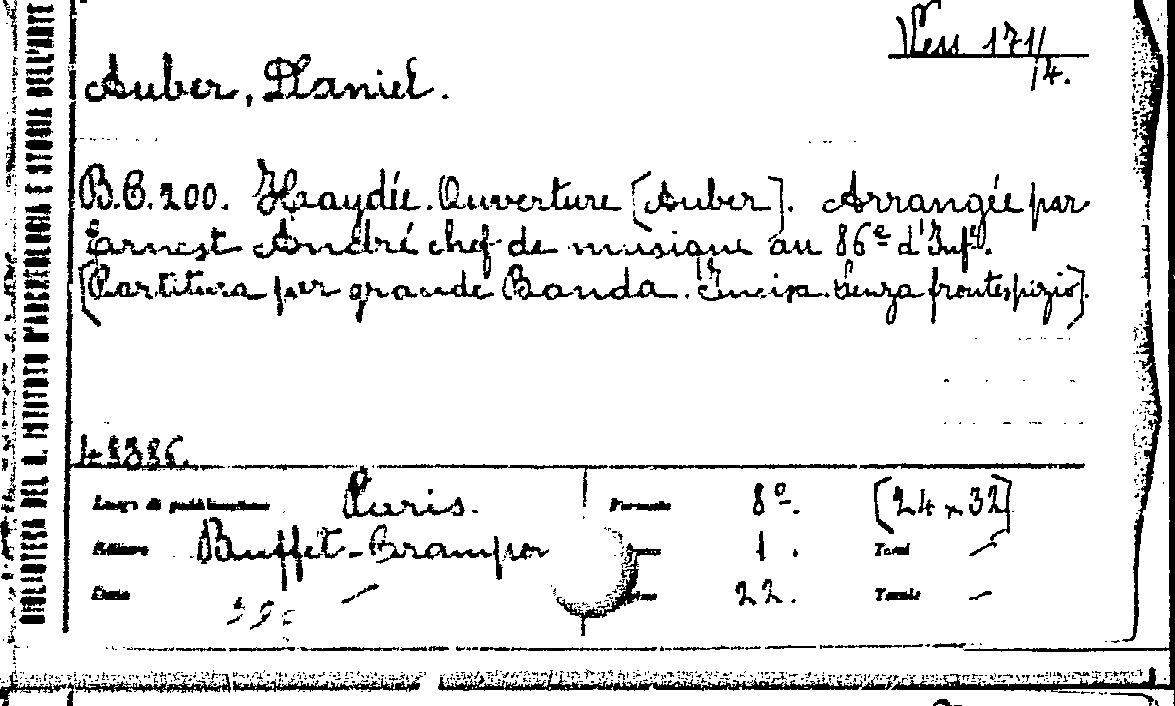 Vess 171/
/4.
Auber, Daniel.
B.C.200. Haydée. Ouverture [Auber]. Arrangée par
Earnest André chef de musique au 86e d'Infie.
[Partitura per grande Banda. Incisa. Senza frontespizio].
48386.
Luogo di pubblicazione Paris. Formato 8º. [24 x 32]
Editore Buffet-Crampon 1. Tomi —
Data — 22. Tavole —
BIBLIOTECA DEL R. ISTITUTO D'ARCHEOLOGIA E STORIA DELL'ARTE